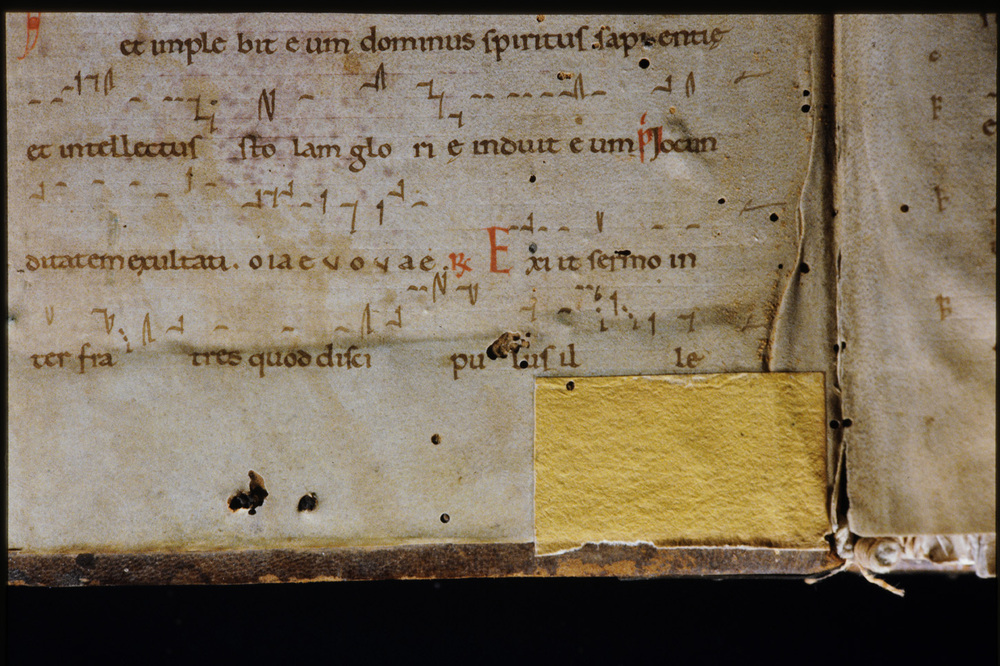 et implebit eum dominus spiritus sapientię
et intellectus sto lam glo ri ę induit eum P Jocun
ditatem exultati. o i a e v o v a e. R Exiit sermo in
ter fra tres quod disci pu lus il le